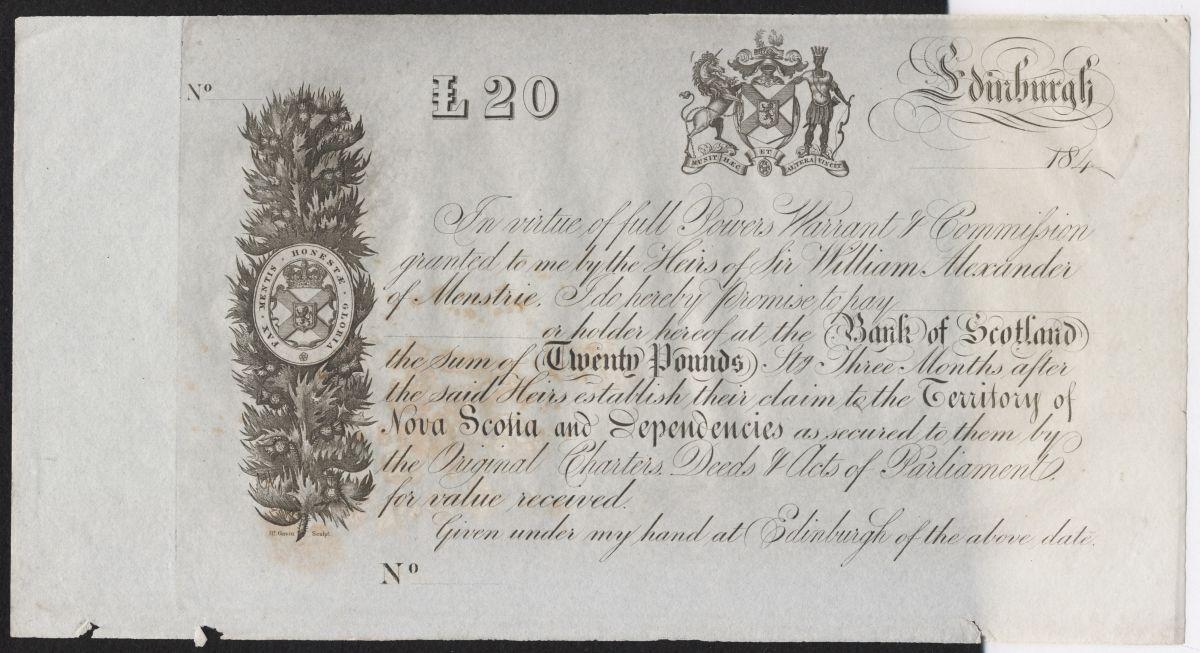 Nº
£ 20
MUNIT HÆC ET ALTERA VINCIT
Edinburgh
184
In virtue of full Powers Warrant & Commission
granted to me by the Heirs of Sir William Alexander
of Menstrie, I do hereby promise to pay
or holder hereof at the Bank of Scotland
the sum of Twenty Pounds Stg Three Months after
the said Heirs establish their claim to the Territory of
Nova Scotia and Dependencies as secured to them by
the Original Charters, Deeds & Acts of Parliament,
for value received.
Given under my hand at Edinburgh of the above date.
Nº
PAX · MENTIS · HONESTÆ · GLORIA
Gavin Sculpt.